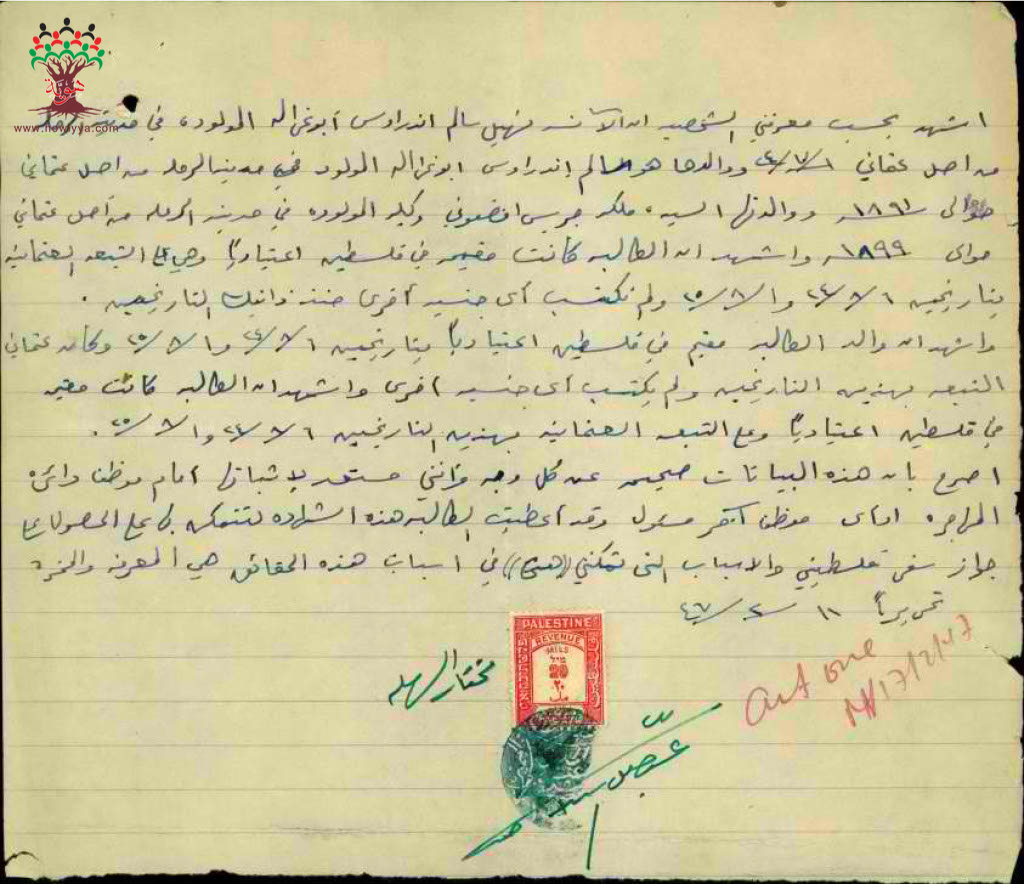 هوية
www.howiyya.com
اشهد بحسب معرفتي الشخصيه ان الآنسه سهيل سالم اندراوس ابو غزاله المولوده في مدينة
من اصل عثماني ٢٤/٧/١ ووالدها هو سالم اندراوس ابو غزاله المولود في مدينة الرمله من اصل عثماني
حوالى ١٨٩١ ووالدتها السيده ملكه جريس وكيله المولوده في مدينة الرمله من اصل عثماني
حوالى ١٨٩٩ واشهد ان الطالبه كانت مقيمه في فلسطين اعتيادياً وهي على التبعه العثمانيه
بتاريخين ٢٤/٨/٦ و ٢٥/٨/١ ولم تكتسب أى جنسيه أخرى منذ ذانيك التاريخين .
واشهد ان والد الطالبه مقيم في فلسطين اعتيادياً بتاريخين ٢٤/٨/٦ و ٢٥/٨/١ وكان عثماني
التبعه بهذين التاريخين ولم يكتسب أى جنسيه اخرى واشهد ان الطالبه كانت مقيمه
في فلسطين اعتيادياً وعلى التبعه العثمانيه بهذين التاريخين ٢٤/٨/٦ و ٢٥/٨/١ .
اصرح بان هذه البيانات صحيحه من كل وجه وانني مستعد لاثباتها امام موظف دائرة
المهاجره او أى موظف آخر مسئول وقد اعطيت الطالبه هذه الشهاده لتتمكن بها على الحصول على
جواز سفر فلسطيني والاسباب التى تمكنني في اسباب هذه الحقائق هي المعرفه والخبره
تحريراً ١١/٢/٤٧
PALESTINE
REVENUE
MILS
מיל
20
٢٠
مل
مختار
art one
17/2/47